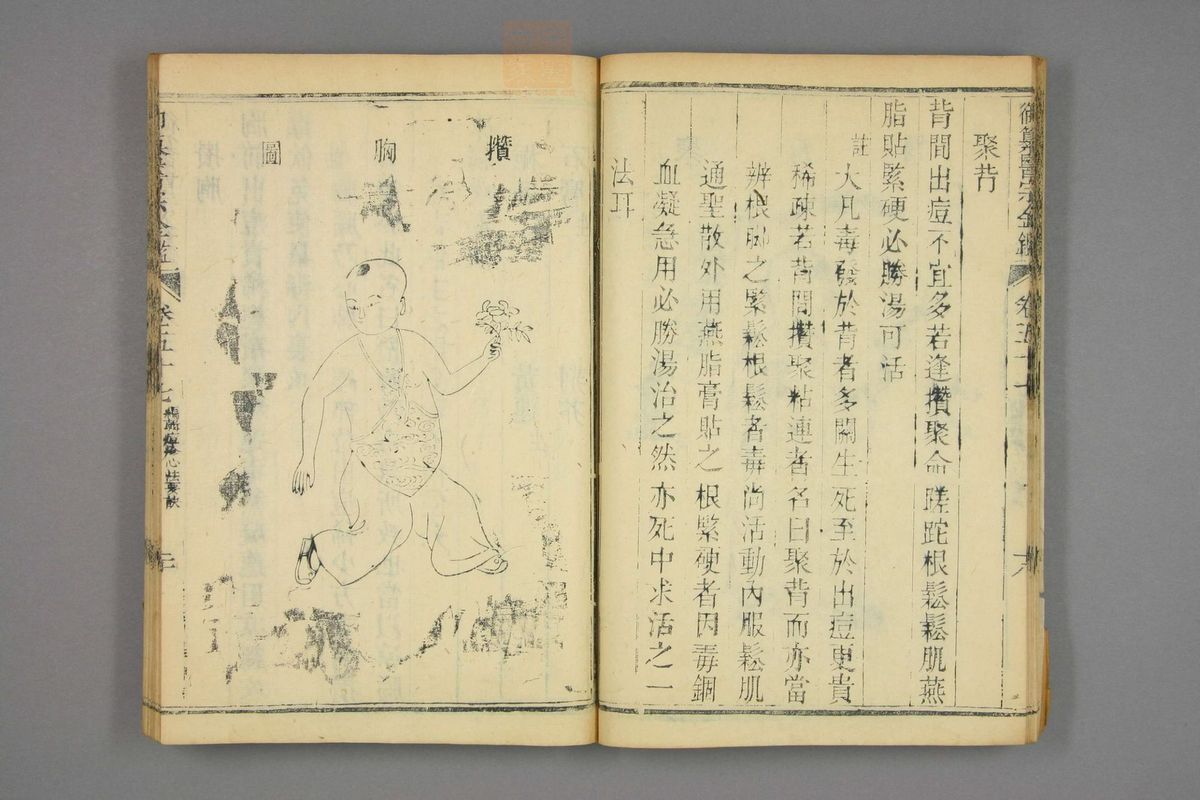 御纂醫宗金鑑
卷五十七
聚背
背間出痘不宜多若逢攢聚命蹉跎根鬆鬆肌燕
脂貼緊硬必勝湯可活
註
大凡毒發於背者多關生死至於出痘更貴
稀疎若背間攢聚粘連者名曰聚背而亦當
辨根脚之緊鬆根鬆者毒尚活動內服鬆肌
通聖散外用燕脂膏貼之根緊硬者因毒錮
血凝急用必勝湯治之然亦死中求活之一
法耳
攢胸圖
卷五十七
痘疹心法要訣